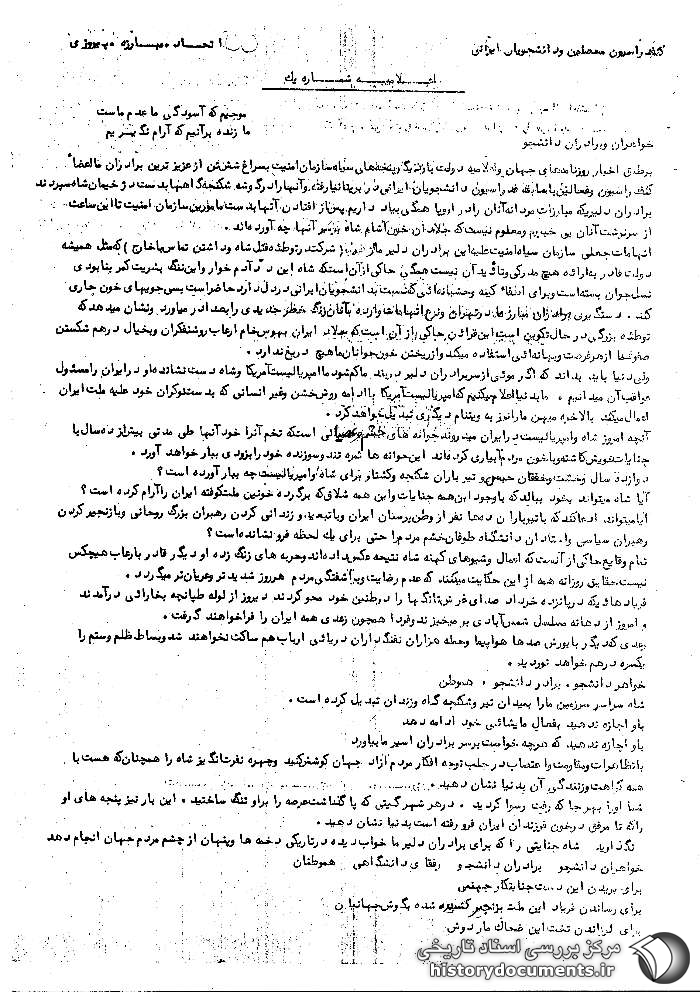 کنفدراسیون محصلین و دانشجویان ایرانی
اتحاد ـ مبارزه ـ پیروزی
اعلامیه شماره یک
موجیم که آسودگی ما عدم ماست
ما زنده برآنیم که آرام نگیریم
خواهران و برادران دانشجو
برطبق اخبار روزنامه‌های جهان و اعلامیه دولت بازنگ پنجه‌های سیاه سازمان امنیت بسراغ شش تن از عزیز ترین برادران ما اعضاء
کنفدراسیون وفعالین با سابقه فدراسیون دانشجویان ایرانی در بریتانیا رفته و آنها را در گوشه شکنجه گاهها بدست دژخیمان شاه سپردند
برادران دلیریکه مبارزات مردانه آنان را در اروپا همگی بیاد داریم پس از افتادن آنها بدست مامورین سازمان امنیت تا این ساعت
از سرنوشت آنان بی خبریم ومعلوم نیست که جلادان خون آشام شاه برسر آنها چه آورده‌اند .
اتهامات جعلی سازمان سیاه امنیت علیه این برادران دلیر ما از قبیل ( شرکت در توطئه قتل شاه و داشتن تماس با خارج ) که مثل همیشه
دولت قادر به ارائه هیچ مدرکی و تائید آن نیست همگی حاکی از آن استکه شاه این دد آدم خوار و این ننگ بشریت کمر بنابودی
نسل جوان بسته است و برای اطفاء کینه وحشیانه‌ائی که نسبت بدانشجویان ایرانی در دل دارد حاضر است بس جویبهای خون جاری
کند . دستگیری برادران مبارز ما در تهران و نوع اتهامات وارده بآنان زنگ خطر جدیدی را بصدا در میاورد و نشان میدهد که
توطئه بزرگی در حال تکوین است این قرائن حاکی از آن است که جلاد ایران بهوس خام ارعاب روشنفکران و بخیال درهم شکستن
صفوف ما از هر فرصت و بهانه‌ائی استفاده میکند و از ریختن خون جوانان ما هیچ دریغ ندارد .
ولی دنیا باید بداند که اگر موئی از سر برادران دلیر در بند ما کم شود ما امپریالیست آمریکا و شاه دست نشانده او در ایران را مسئول
عواقب آن میدانیم . ما بدنیا اعلام میکنیم که امپریالیست آمریکا با ادامه روش خشن وغیر انسانی که بدست نوکران خود علیه ملت ایران
اعمال میکند بالاخره میهن ما را نیز به ویتنام دیگری تبدیل خواهد کرد .
آنچه امروز شاه و امپریالیست در ایران میدروند جوانه های خشم و عصیانی استکه تخم آنرا خود آنها طی مدتی بیش از ده سال با
جنایات خویش کاشته و با خون مردم آبیاری کرده‌اند این جوانه ها ثمره تند وسوزنده خود را بزودی ببار خواهد آورد .
دوازده سال وحشت وخفقان حبس و تیر باران شکنجه وکشتار برای شاه و امپریالیست چه ببار آورده است ؟
آیا شاه میتواند بخود ببالد که با وجود این همه جنایات و این همه شلاق که بر گرده خونین ملت کوفته ایران را آرام کرده است ؟
آیا میتواند ادعا کند که با تیرباران ده‌ها نفر از وطن پرستان ایران و با تبعید و زندانی کردن رهبران بزرگ روحانی و با زنجیر کردن
رهبران سیاسی و استادان دانشگاه طوفان خشم مردم را حتی برای یک لحظه فرو نشانده است ؟
تمام وقایع حاکی از آنست که اعمال و شیوهای کهنه شاه نتیجه عکس داده‌اند و حربه های زنگ زده او دیگر قادر بارعاب هیچکس
نیست حقایق روزانه همه از این حکایت میکنند که عدم رضایت و برآشفتگی مردم هر روز شدیدتر و عریان تر میگردد .
فریادهائیکه در پانزده خرداد صدای غرش تانگها را در طنین خود محو کردند دیروز از لوله طپانچه بخارائی درآمدند
و امروز از دهانه مسلسل شمس آبادی برمیخیزند و فردا همچون رعدی همه ایران را فرا خواهند گرفت .
رعدی که دیگر با یورش صدها هواپیما وحمله هزاران تفنگداران دریائی ارباب هم ساکت نخواهند شد و بساط ظلم وستم را
یکسره درهم خواهد نوردید .
خواهر دانشجو . برادر دانشجو . هموطن
شاه سراسر سرزمین ما را بمیدان تیر وشکنجه گاه وزندان تبدیل کرده است .
باو اجازه ندهید بفعال مایشائی خود ادامه دهد
باو اجازه ندهید که هرچه خواست بر سر برادران اسیر ما بیاورد
با تظاهرات و مقاومت و اعتصاب در جلب توجه افکار مردم آزاد جهان کوشش کنید وچهره نفرت انگیز شاه را همچنان که هست با
همه کراهت وزنندگی آن بدنیا نشان دهید .
شما او را بهر جا که رفت رسوا کردید . در هر شهر گیتی که پا گذاشت عرصه را بر او تنگ ساختید . این بار نیز پنجه های او
را که تا مرفق در خون فرزندان ایران فرو رفته است بدنیا نشان دهید .
نگذارید شاه جنایتی را که برای برادران دلیر ما خواب دیده در تاریکی دخمه ها وپنهان از چشم مردم جهان انجام دهد
خواهران دانشجو برادران دانشجو رفقای دانشگاهی هموطنان
برای بریدن این دست جنایتکار جهنمی
برای رساندن فریاد این ملت بزنجیر کشیده شده بگوش جهانیان
برای لرزاندن تخت این ضحاک ماردوش
مرکز بررسی اسناد تاریخی
historydocuments.ir